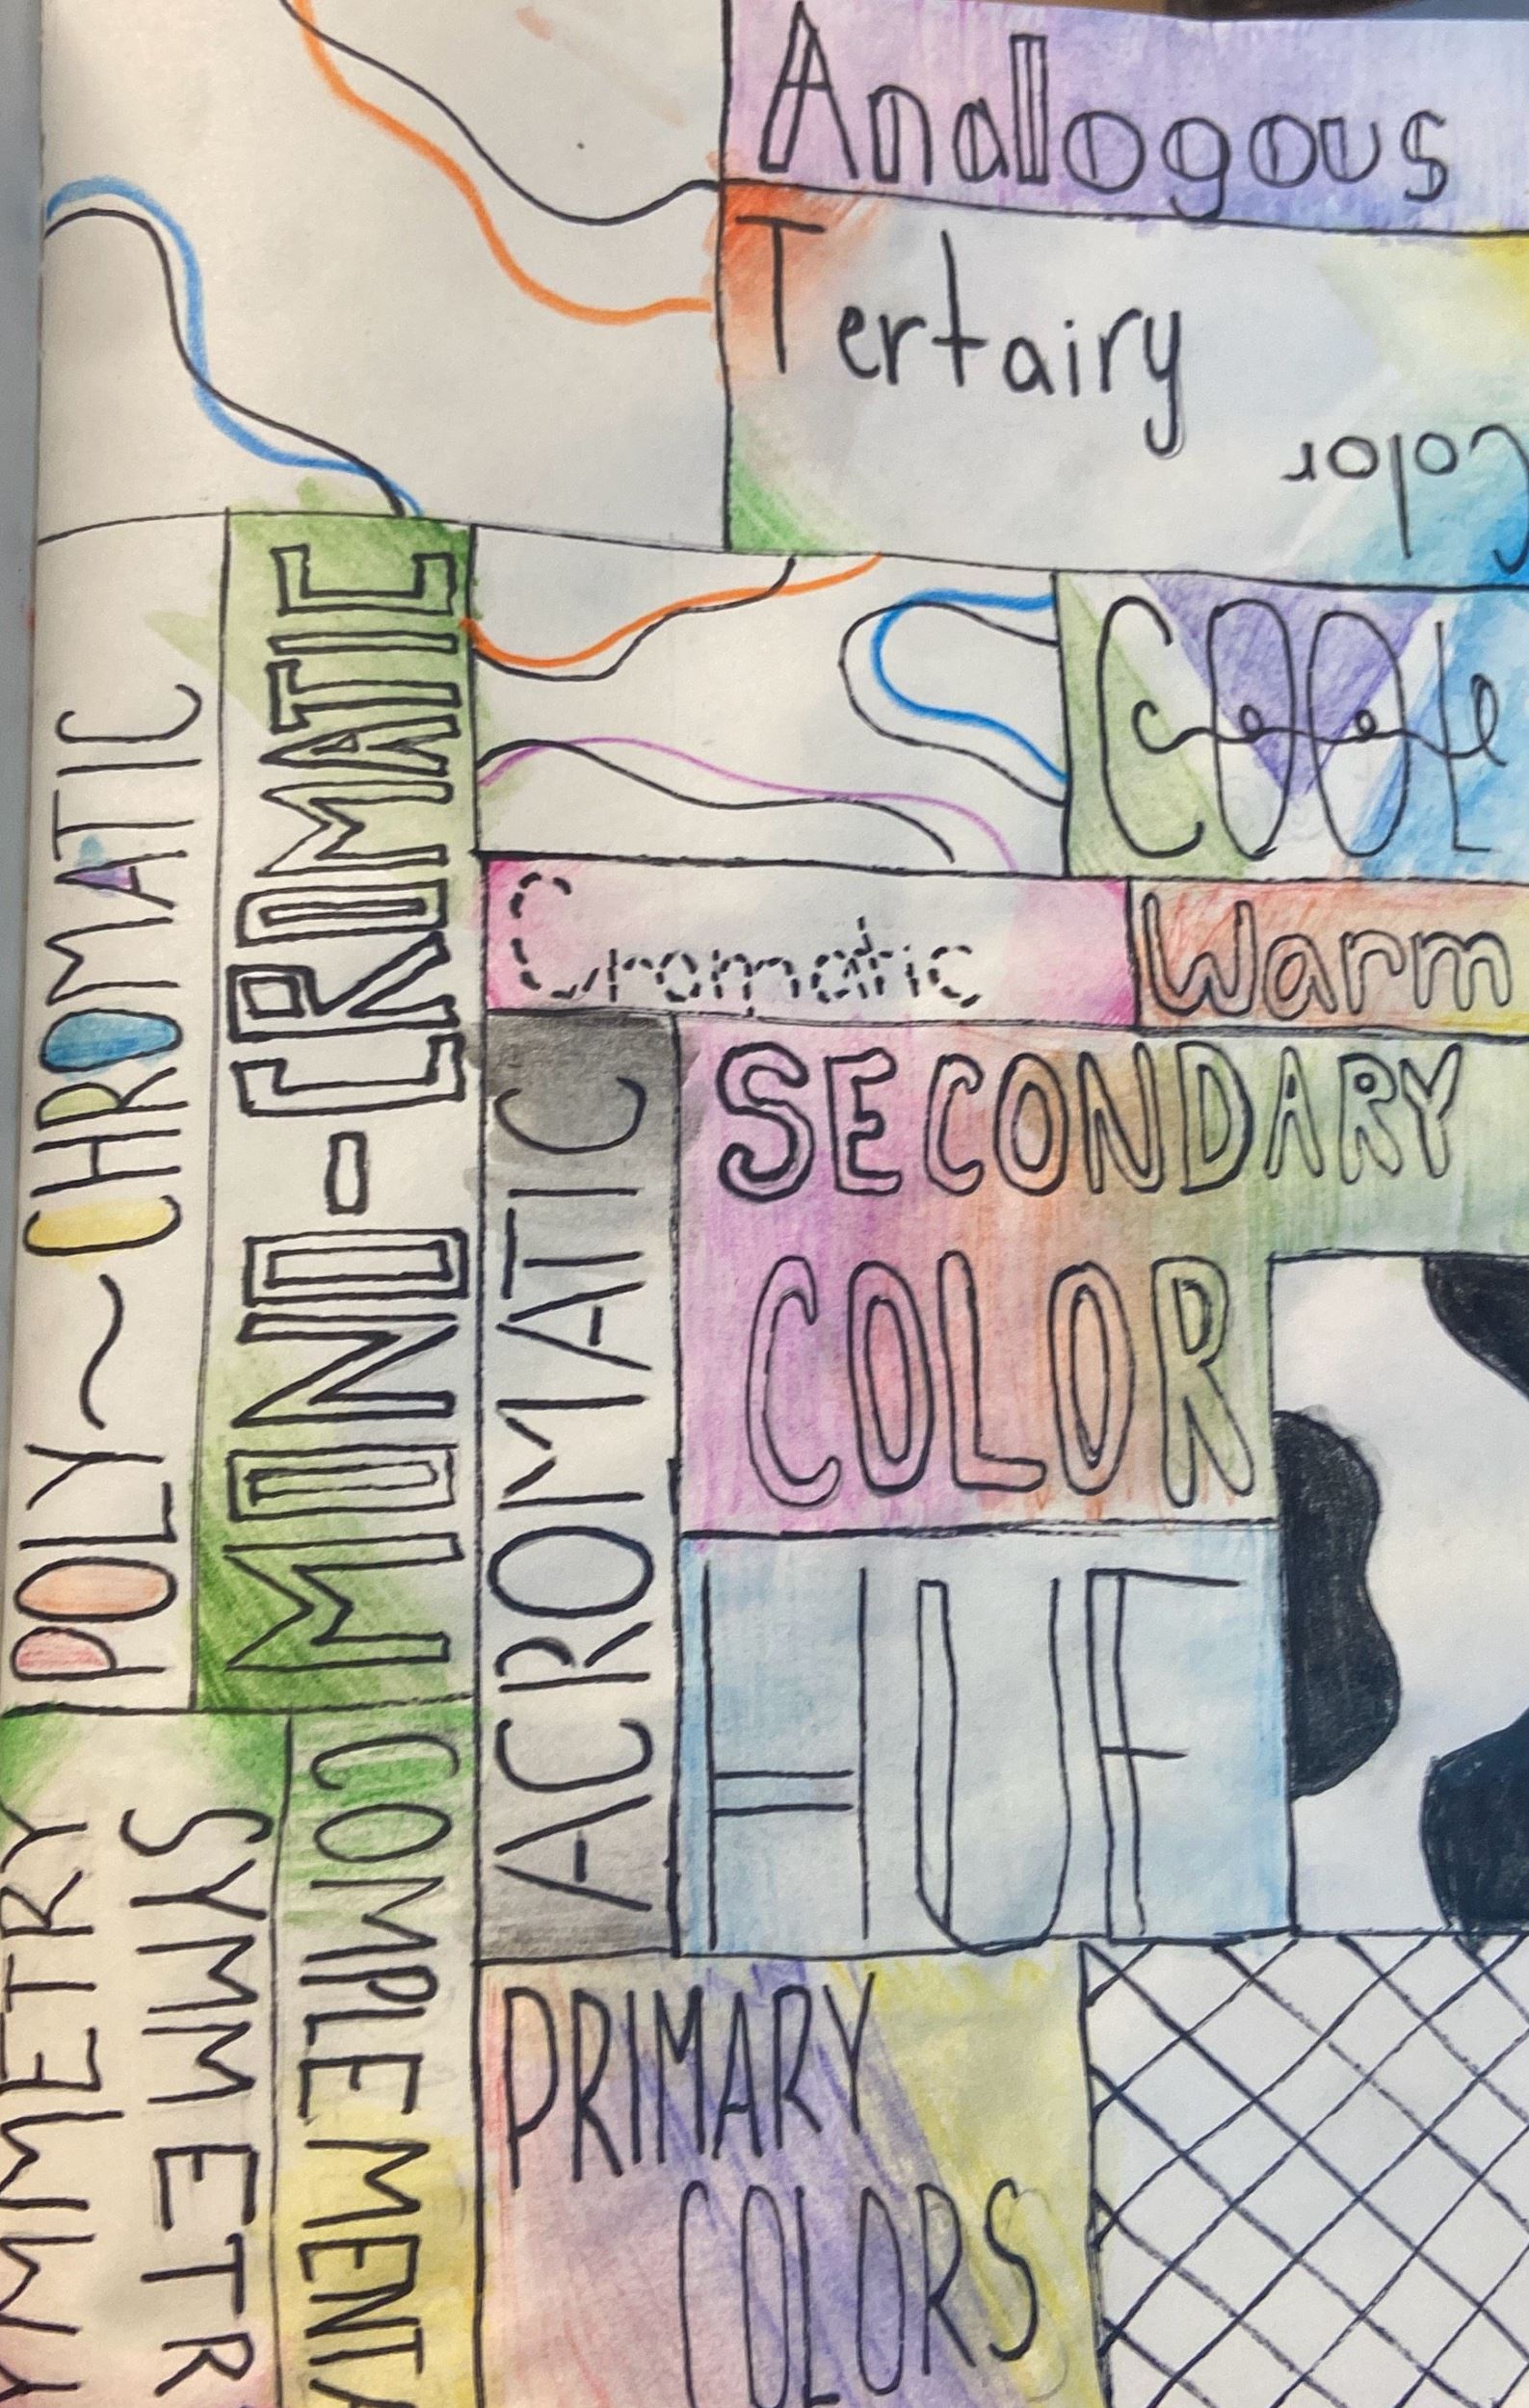 Analogous
Tertairy
Color
COOL
cool
POLY~CHROMATIC
MONO-CROMATIC
Cromatic
Warm
ACROMATIC
SECONDARY
COLOR
HUE
SYMMETR
YMMETRY
COMPLEMENTA
PRIMARY
COLORS